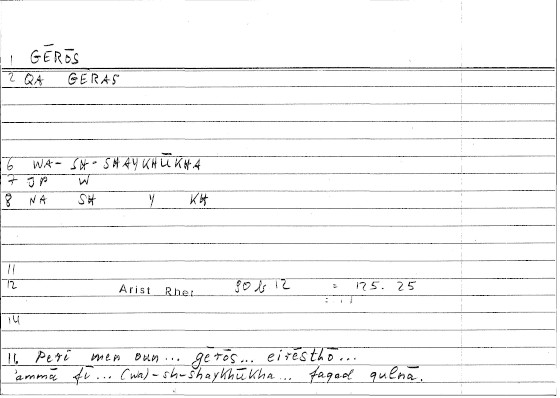 1 GĒRŌS
2 QA GERAS
6 WA- SH- SHAYKHŪKHA
7 JP W
8 NA SH Y KH
11
12 Arist Rhet 90 b 12 = 125. 25
14
16 Peri men oun... gērōs... eirēsthō...
'ammā fī... (wa)-sh-shaykhūkha... faqad qulnā.